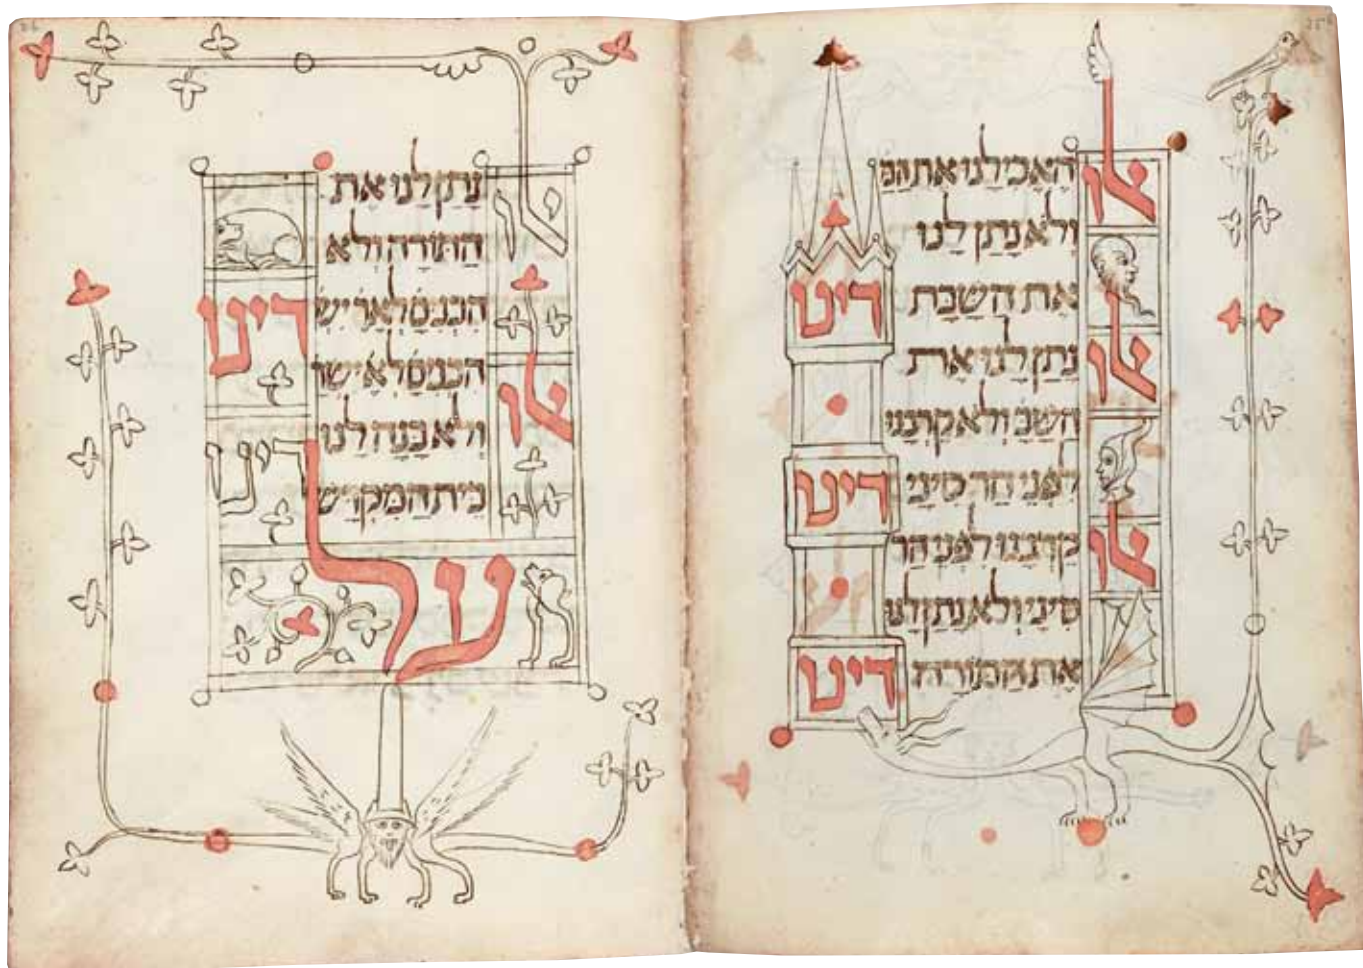 אלו האכילנו את המן
ולא נתן לנו
את השבת דינו
אלו נתן לנו את
השבת ולא קרבנו
לפני הר סיני דינו
אלו קרבנו לפני הר
סיני ולא נתן לנו
את התורה דינו
אלו נתן לנו את
התורה ולא
דינו
אלו
ולא בנה לנו
בית המקדש דינו
על